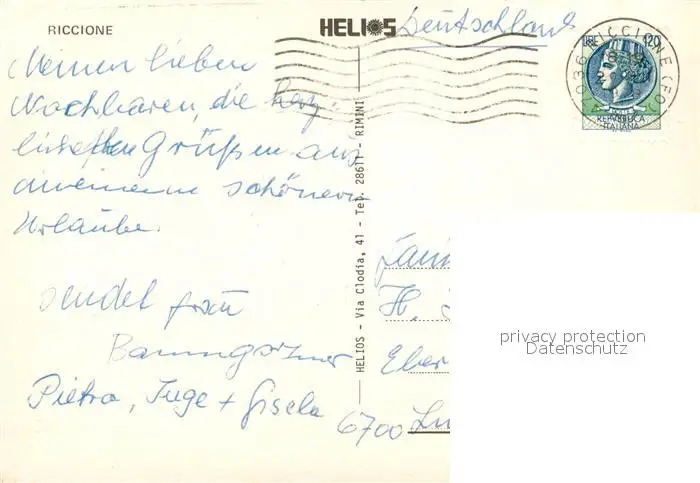 RICCIONE
HELIOS
Deutschland
LIRE 120
REPVBBLICA
ITALIANA
RICCIONE (FO)
Meinen lieben
Nachbaren, die herz-
lichsten Grüßen aus
meinem schönern
Urlaube.
sendet Frau
Baumgartner
Pietro, Inge + Gisela
HELIOS - Via Clodia, 41 - Tel. 28611 - RIMINI
Fam
H.
Eber
6700 Lu
privacy protection
Datenschutz